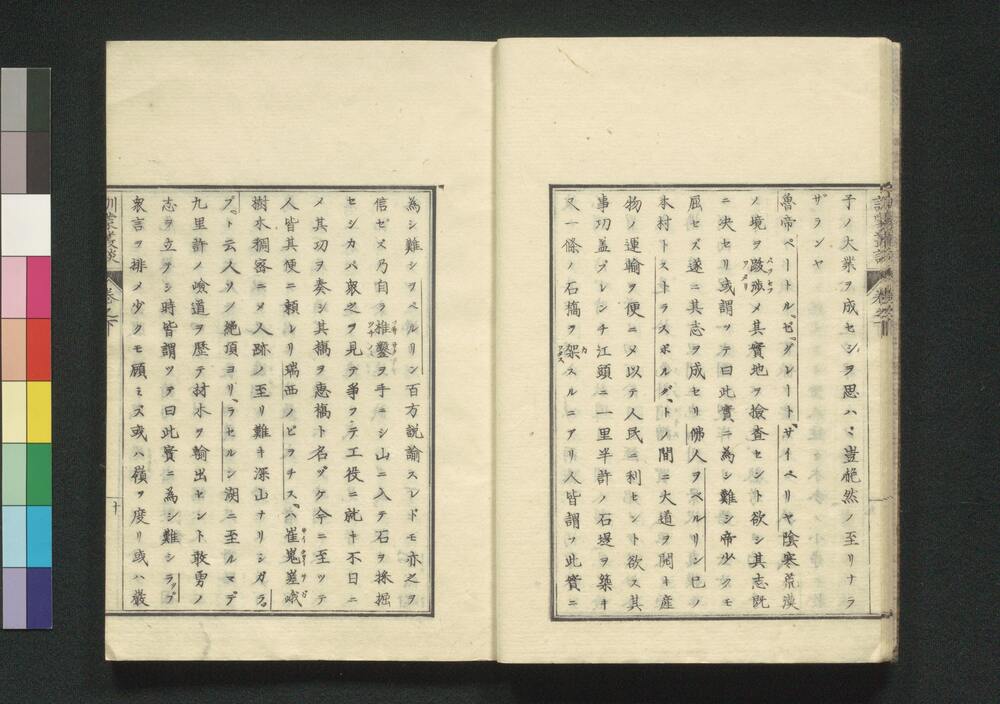 子ノ大業ヲ成セシヲ思ハヾ豈赧然ノ至リナラ
ザランヤ
魯帝ペートル、ゼ、グレート、サイベリヤ陰寒荒漠
ノ境ヲ跋渉メ其實地ヲ撿査セント欲シ其志既
ニ决セリ或謂ツテ曰此實ニ為シ難シ帝少クモ
屈セズ遂ニ其志ヲ成セリ佛人ヲベルリン己ノ
本村トストラスボルグトノ間ニ大道ヲ開キ産
物ノ運輸ヲ便ニメ以テ人民ニ利セント欲ス其
事功蓋ブレンチ江頭ニ一里半許ノ石堤ヲ築キ
又一條ノ石槗ヲ架スルニアリ人皆謂フ此實ニ
為シ難シヲベルリン百方説諭スレドモ亦之ヲ
信セズ乃自ラ椎鑿ヲ手ニシ山ニ入テ石ヲ採掘
セシカバ衆之ヲ見テ爭フテ工役ニ就キ不日ニ
メ其功ヲ奏シ其槗ヲ恵槗ト名ヅケ今ニ至ツテ
人皆其便ニ頼レリ瑞西ノピヲチスハ崔嵬嵳峨
樹木稠密ニメ人跡ノ至リ難キ深山ナリシガラ
プト云人ソノ絶頂ヨリラセルン湖ニ至ルマデ
九里許ノ嶮道ヲ歴テ材木ヲ輸出セント敢勇ノ
志ヲ立ヲシ時皆謂ツテ曰此實ニ為シ難シラップ
衆言ヲ排メ少クモ顧ミズ或ハ嶺ヲ度リ或ハ巌
訓蒙叢談
卷之下
十